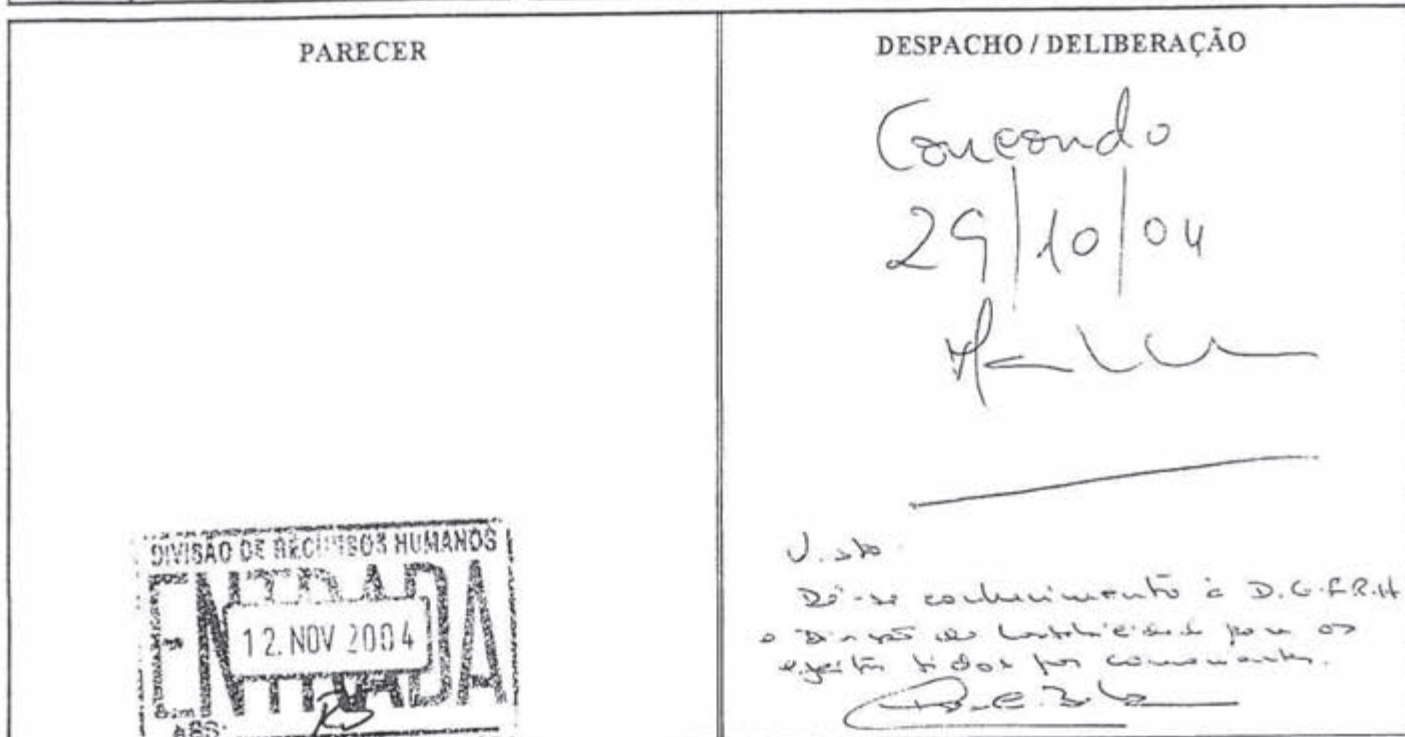 PARECER
DIVISÃO DE RECURSOS HUMANOS
ENTRADA
12. NOV 2004
ASS:
DESPACHO / DELIBERAÇÃO
Concordo
29/10/04
Visto.
Dê-se conhecimento à D.G.F.R.H
e Divisão de Contabilidade para os
efeitos tidos por convenientes.